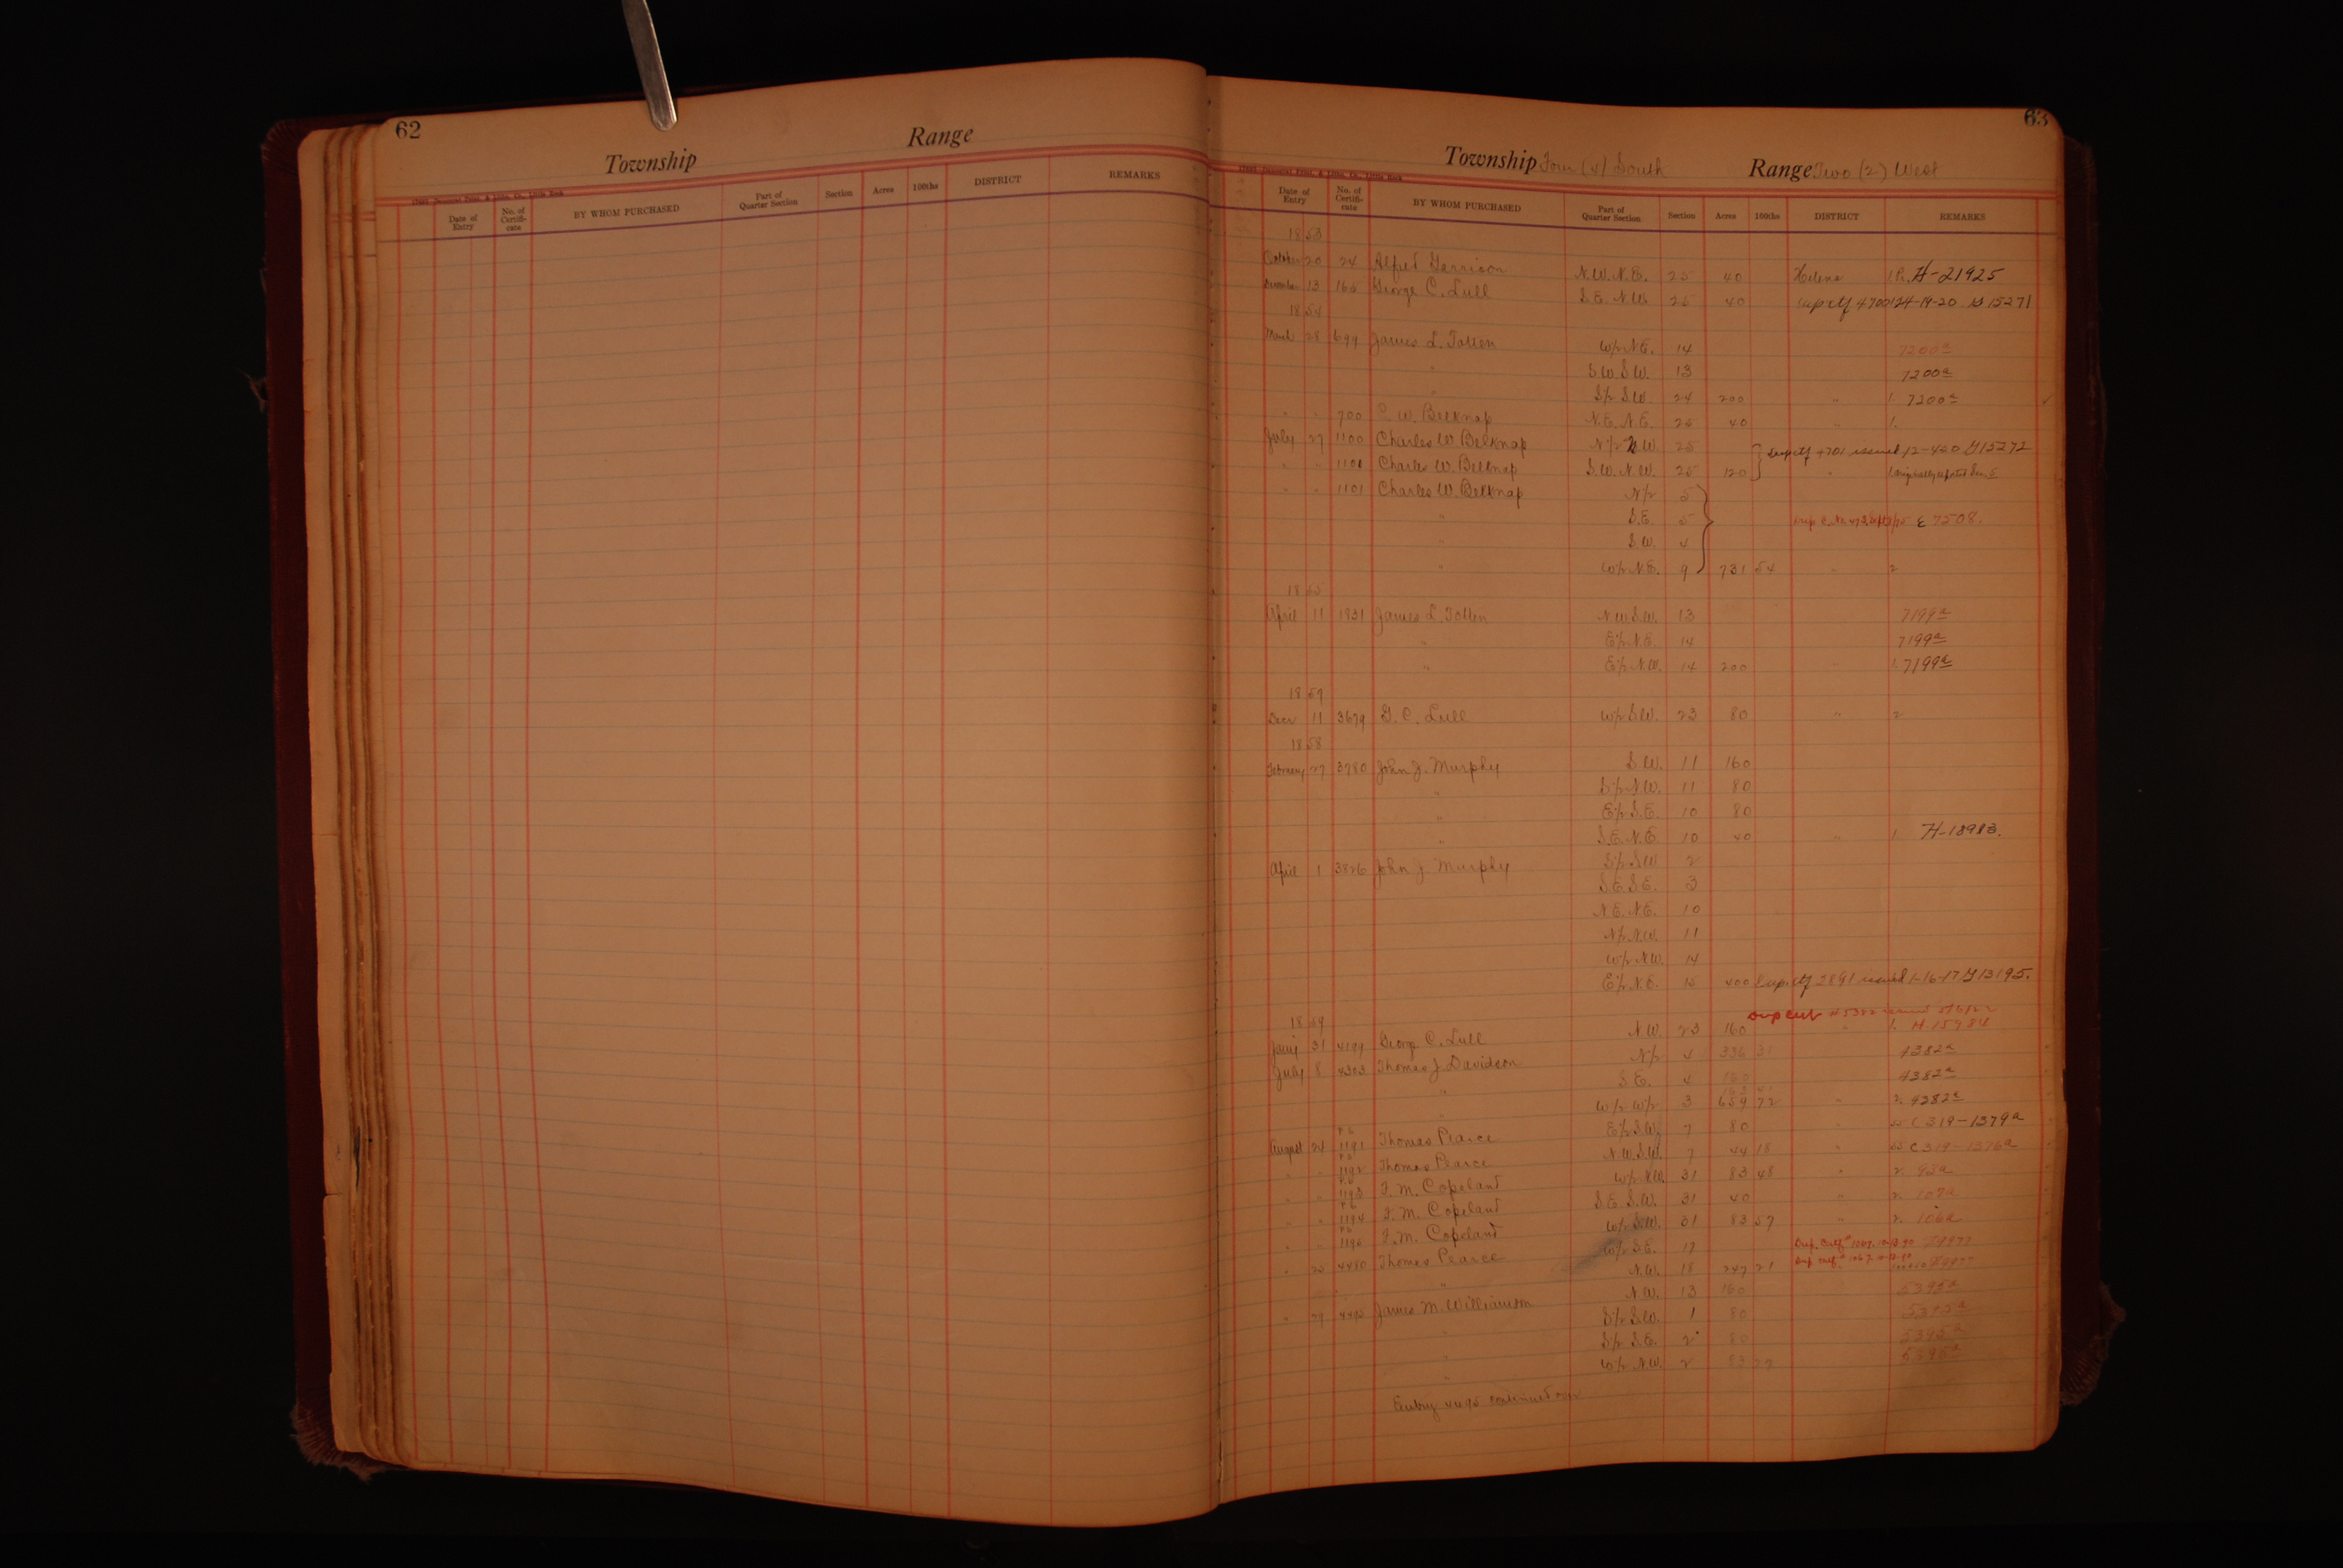 62
Township
Range
Date of Entry
No. of Certifi-cate
BY WHOM PURCHASED
Part of Quarter Section
Section
Acres
100ths
DISTRICT
REMARKS
63
Township Four (4) South Range Two (2) West
Date of Entry
No. of Certifi-cate
BY WHOM PURCHASED
Part of Quarter Section
Section
Acres
100ths
DISTRICT
REMARKS
1853
October 20 24 Alfred Garrison N.W. N.E. 25 40 Helena H-21925
December 13 George C. Lull S.E. N.W. 25 40 15271
1854
March 28 699 James L. Totten W/2 N.E. 14 7200a
" S.W. S.W. 13 7200a
" S/2 S.W. 24 200 " 1. 7200a
" " 700 C. W. Belknap N.E. N.E. 40 " 1.
July 27 1100 Charles W. Belknap N/2 N.W. 25 Dup ctf 4701 issued 15272
" " 1100 Charles W. Belknap S.W. N.W. 25 120 "
" " 1101 Charles W. Belknap N/2 5
" S.E. 5 E 7508.
" S.W. 4
" W/2 N.E. 9 731 54 " 2
1855
April 11 1831 James L. Totten N.W. S.W. 13 7199a
" E/2 N.E. 14 7199a
" E/2 N.W. 14 200 " 1. 7199a
1857
Decr 11 3679 G. C. Lull W/2 S.W. 23 80 " 2
1858
February 27 3780 John J. Murphy S.W. 11 160
" S/2 N.W. 11 80
" E/2 S.E. 10 80
" S.E. N.E. 10 40 " 1 H-18983.
April 1 3826 John J. Murphy S/2 S.W. 2
S.E. S.E. 3
N.E. N.E. 10
N/2 N.W. 11
W/2 N.W. 14
E/2 N.E. 15 400 Dup. ctf 3891 issued 1-16-17 13195.
Dup cert
1859
31 4199 George C. Lull N.W. 23 160 " 1. H 15984
July 8 4303 Thomas J. Davidson N/2 4 336 31 4382a
" S.E. 4 160 4382a
" W/2 W/2 3 659 72 " 2. 4382a
August 24 1191 Thomas Pearce E/2 S.W. 7 80 C 319-1379a
" " 1192 Thomas Pearce N.W. S.W. 7 44 18 " C 319-1376a
" " 1193 F. M. Copeland W/2 N.W. 31 83 48 " 2.
" " 1194 F. M. Copeland S.E. S.W. 31 40 " 2.
" " F. M. Copeland W/2 S.W. 31 83 57 " 2. 106a
" 4480 Thomas Pearce W/2 S.E. 17
" N.W. 18 247 21
" 29 4492 James M. Williamson N.W. 13 160 5395a
" S/2 S.W. 1 80 5395a
" S/2 S.E. 2 80 5395a
" W/2 N.W. 2 5395a
Entry 4492 continued over